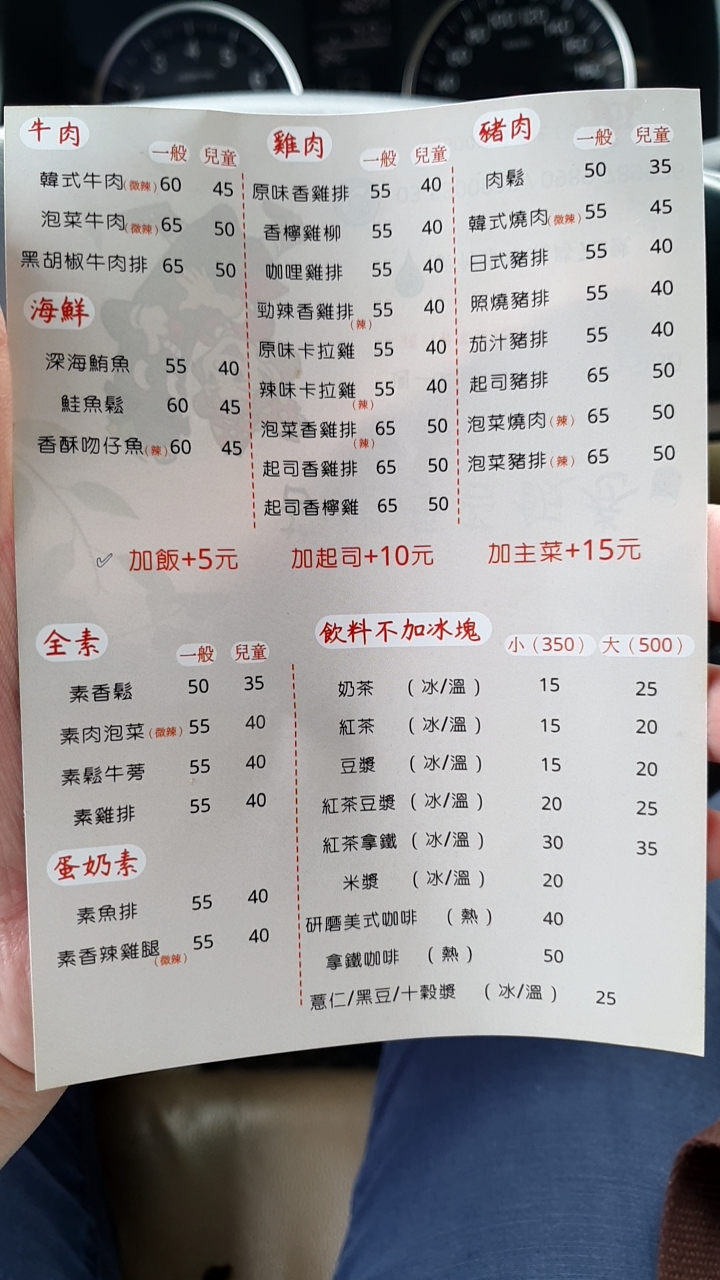 牛肉
一般 兒童
韓式牛肉(微辣) 60 45
泡菜牛肉(微辣) 65 50
黑胡椒牛肉排 65 50
海鮮
深海鮪魚 55 40
鮭魚鬆 60 45
香酥吻仔魚(辣) 60 45
雞肉
一般 兒童
原味香雞排 55 40
香檸雞柳 55 40
咖哩雞排 55 40
勁辣香雞排(辣) 55 40
原味卡拉雞 55 40
辣味卡拉雞(辣) 55 40
泡菜香雞排(辣) 65 50
起司香雞排 65 50
起司香檸雞 65 50
豬肉
一般 兒童
肉鬆 50 35
韓式燒肉(微辣) 55 45
日式豬排 55 40
照燒豬排 55 40
茄汁豬排 55 40
起司豬排 65 50
泡菜燒肉(辣) 65 50
泡菜豬排(辣) 65 50
✓ 加飯+5元 加起司+10元 加主菜+15元
全素
一般 兒童
素香鬆 50 35
素肉泡菜(微辣) 55 40
素鬆牛蒡 55 40
素雞排 55 40
蛋奶素
素魚排 55 40
素香辣雞腿(微辣) 55 40
飲料不加冰塊
小(350) 大(500)
奶茶 (冰/溫) 15 25
紅茶 (冰/溫) 15 20
豆漿 (冰/溫) 15 20
紅茶豆漿 (冰/溫) 20 25
紅茶拿鐵 (冰/溫) 30 35
米漿 (冰/溫) 20
研磨美式咖啡 (熱) 40
拿鐵咖啡 (熱) 50
薏仁/黑豆/十穀漿 (冰/溫) 25